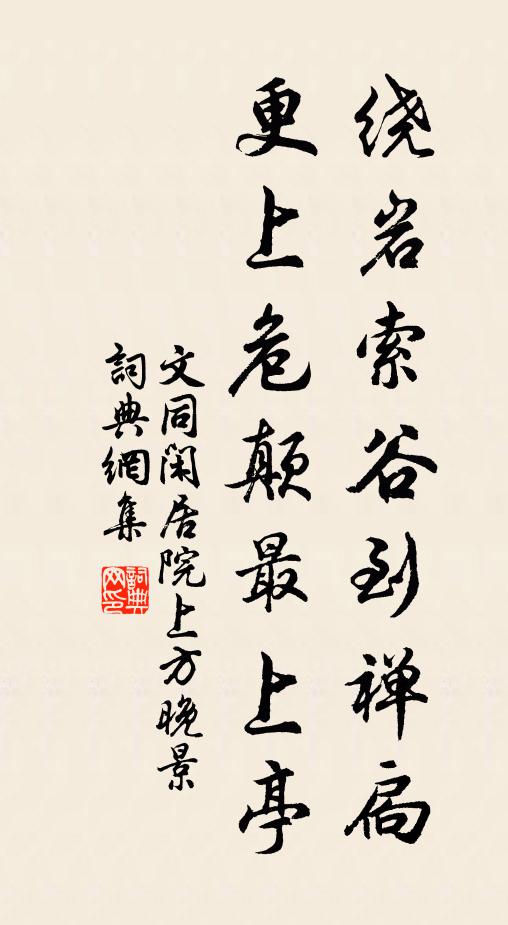 绕岩索谷到禅扃
更上危颠最上亭
文同闲居院上方晚景
詞典網集
詞典网印